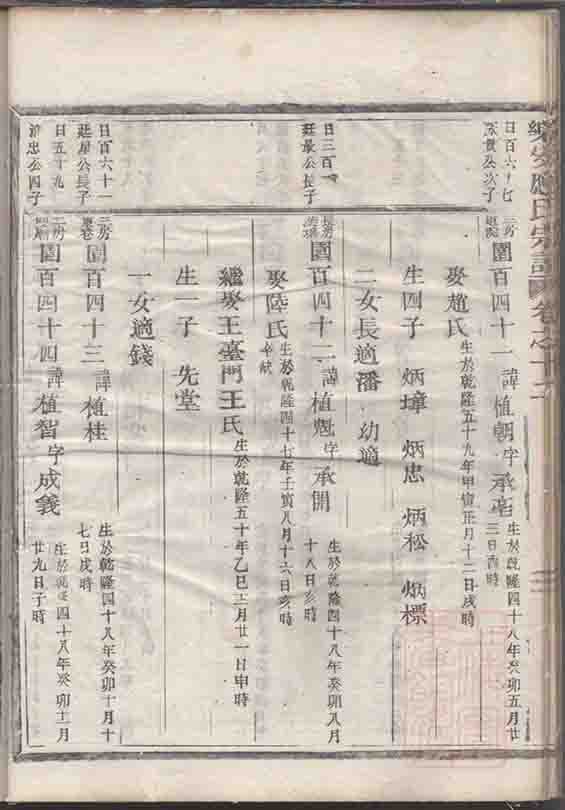 應氏宗譜 卷之十二
日百六十七
公次子
二房
圍百四十一 諱植朝字承
生於乾隆四十八年癸卯五月廿
三日酉時
娶趙氏 生於乾隆五十九年甲寅正月十二日戌時
生四子 炳璋 炳忠 炳松 炳標
二女長適潘 幼適
日三百
公長子
長房
圍百四十二 諱植魁字承開
生於乾隆四十八年癸卯八月
十八日亥時
娶陸氏
生於乾隆四十七年壬寅八月十六日亥時
繼娶王臺門王氏 生於乾隆五十年乙巳二月廿一日申時
生一子 先堂
一女適錢
日百六十一
廷星公長子
二房
圍百四十三 諱植桂
生於乾隆四十八年癸卯十月十
七日戌時
日五十九
忠公四子
二房
圍百四十四 諱植智字成義
生於乾隆四十八年癸卯十二月
廿九日子時